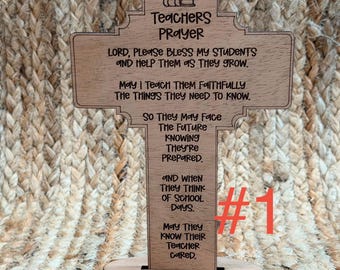 Teachers
Prayer
Lord, please bless my students
and help them as they grow.
May I teach them faithfully
the things they need to know.
So they may face
the future
knowing
they're
prepared.
and when
they think
of school
days.
May they
know their
teacher
cared.
#1